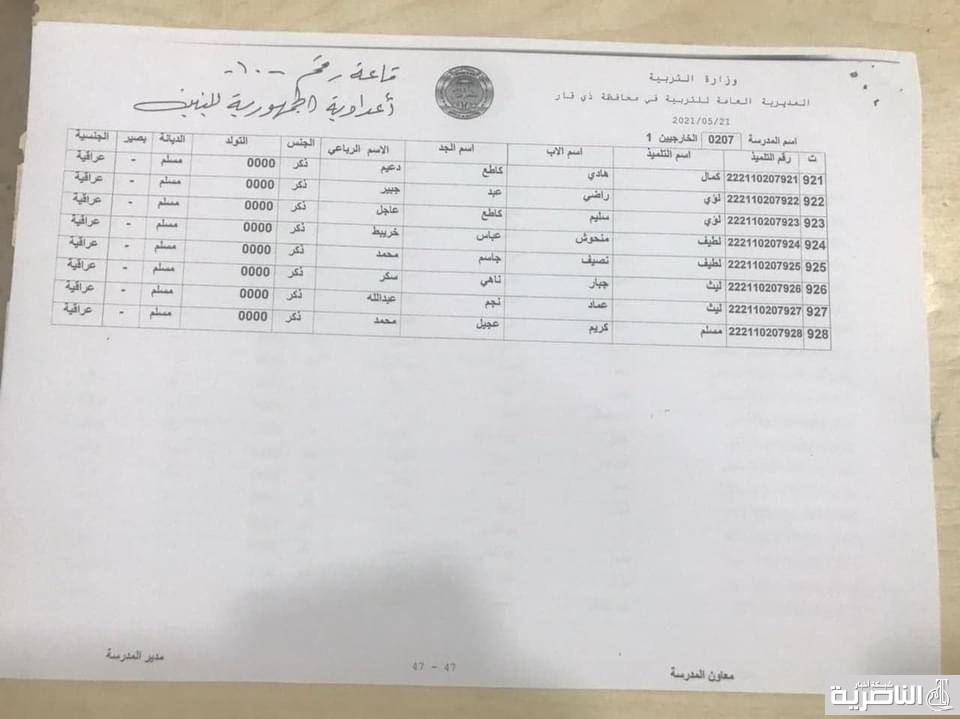 وزارة التربية
المديرية العامة للتربية في محافظة ذي قار
2021/05/21
قاعة رقم -١٠-
أعدادية الجمهورية للبنين
اسم المدرسة 0207 الخارجيين 1
ت رقم التلميذ اسم التلميذ اسم الاب اسم الجد الاسم الرباعي الجنس التولد الديانة بصير الجنسية
921 222110207921 كمال هادي كاطع دعيم ذكر 0000 مسلم - عراقية
922 222110207922 لؤي راضي عبد جبير ذكر 0000 مسلم - عراقية
923 222110207923 لؤي سليم كاطع عاجل ذكر 0000 مسلم - عراقية
924 222110207924 لطيف منحوش عباس خريبط ذكر 0000 مسلم - عراقية
925 222110207925 لطيف نصيف جاسم محمد ذكر 0000 مسلم - عراقية
926 222110207926 ليث جبار ناهي سكر ذكر 0000 مسلم - عراقية
927 222110207927 ليث عماد نجم عبدالله ذكر 0000 مسلم - عراقية
928 222110207928 مسلم كريم عجيل محمد ذكر 0000 مسلم - عراقية
معاون المدرسة
47 - 47
مدير المدرسة
شبكة أخبار
الناصرية